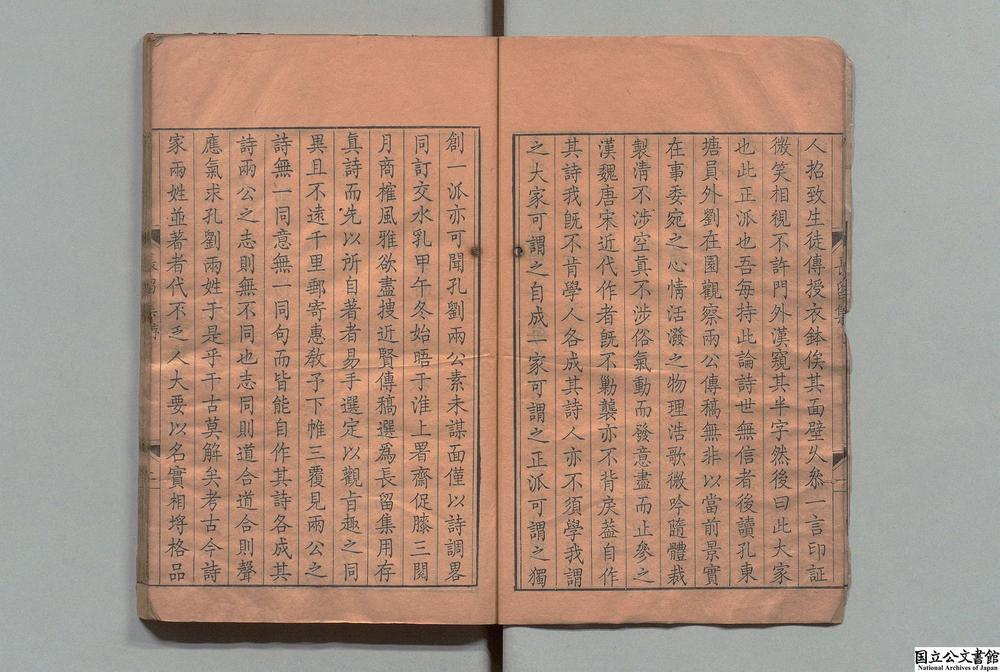 人招致生徒傳授衣鉢俟其面壁久叅一言印証
微笑相視不許門外漢窺其半字然後曰此大家
也此正派也吾每持此論詩世無信者後讀孔東
塘員外劉在園觀察兩公傳稿無非以當前景實
在事委宛之心情活潑之物理浩歌微吟隨體裁
製清不涉空真不涉俗氣動而發意盡而止參之
漢魏唐宋近代作者旣不勦襲亦不背戾葢自作
其詩我旣不肯學人各成其詩人亦不須學我謂
之大家可謂之自成一家可謂之正派可謂之獨
創一派亦可聞孔劉兩公素未謀面僅以詩調畧
同訂交水乳甲午冬始晤于淮上署齋促膝三閱
月商榷風雅欲盡搜近賢傳稿選爲長留集用存
真詩而先以所自著者易手選定以觀旨趣之同
異且不遠千里郵寄惠敎予下帷三覆見兩公之
詩無一同意無一同句而皆能自作其詩各成其
詩兩公之志則無不同也志同則道合道合則聲
應氣求孔劉兩姓于是乎千古莫解矣考古今詩
家兩姓並著者代不乏人大要以名實相埒格品
国立公文書館
National Archives of Japan